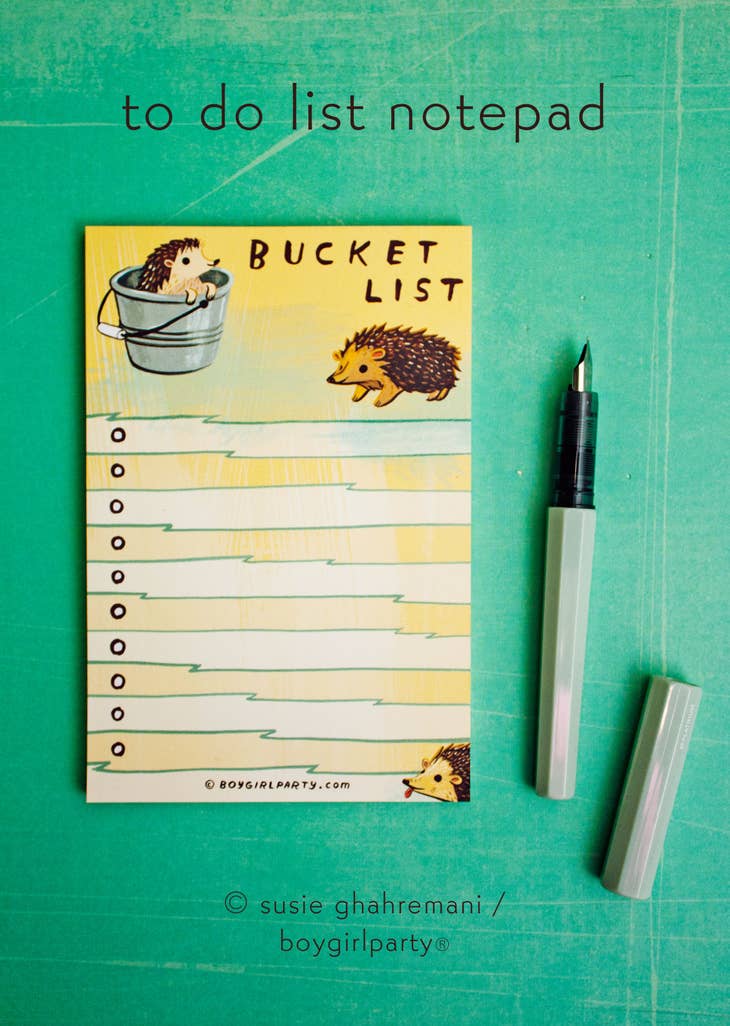 to do list notepad
BUCKET
LIST
© BOYGIRLPARTY.COM
© susie ghahremani /
boygirlparty®